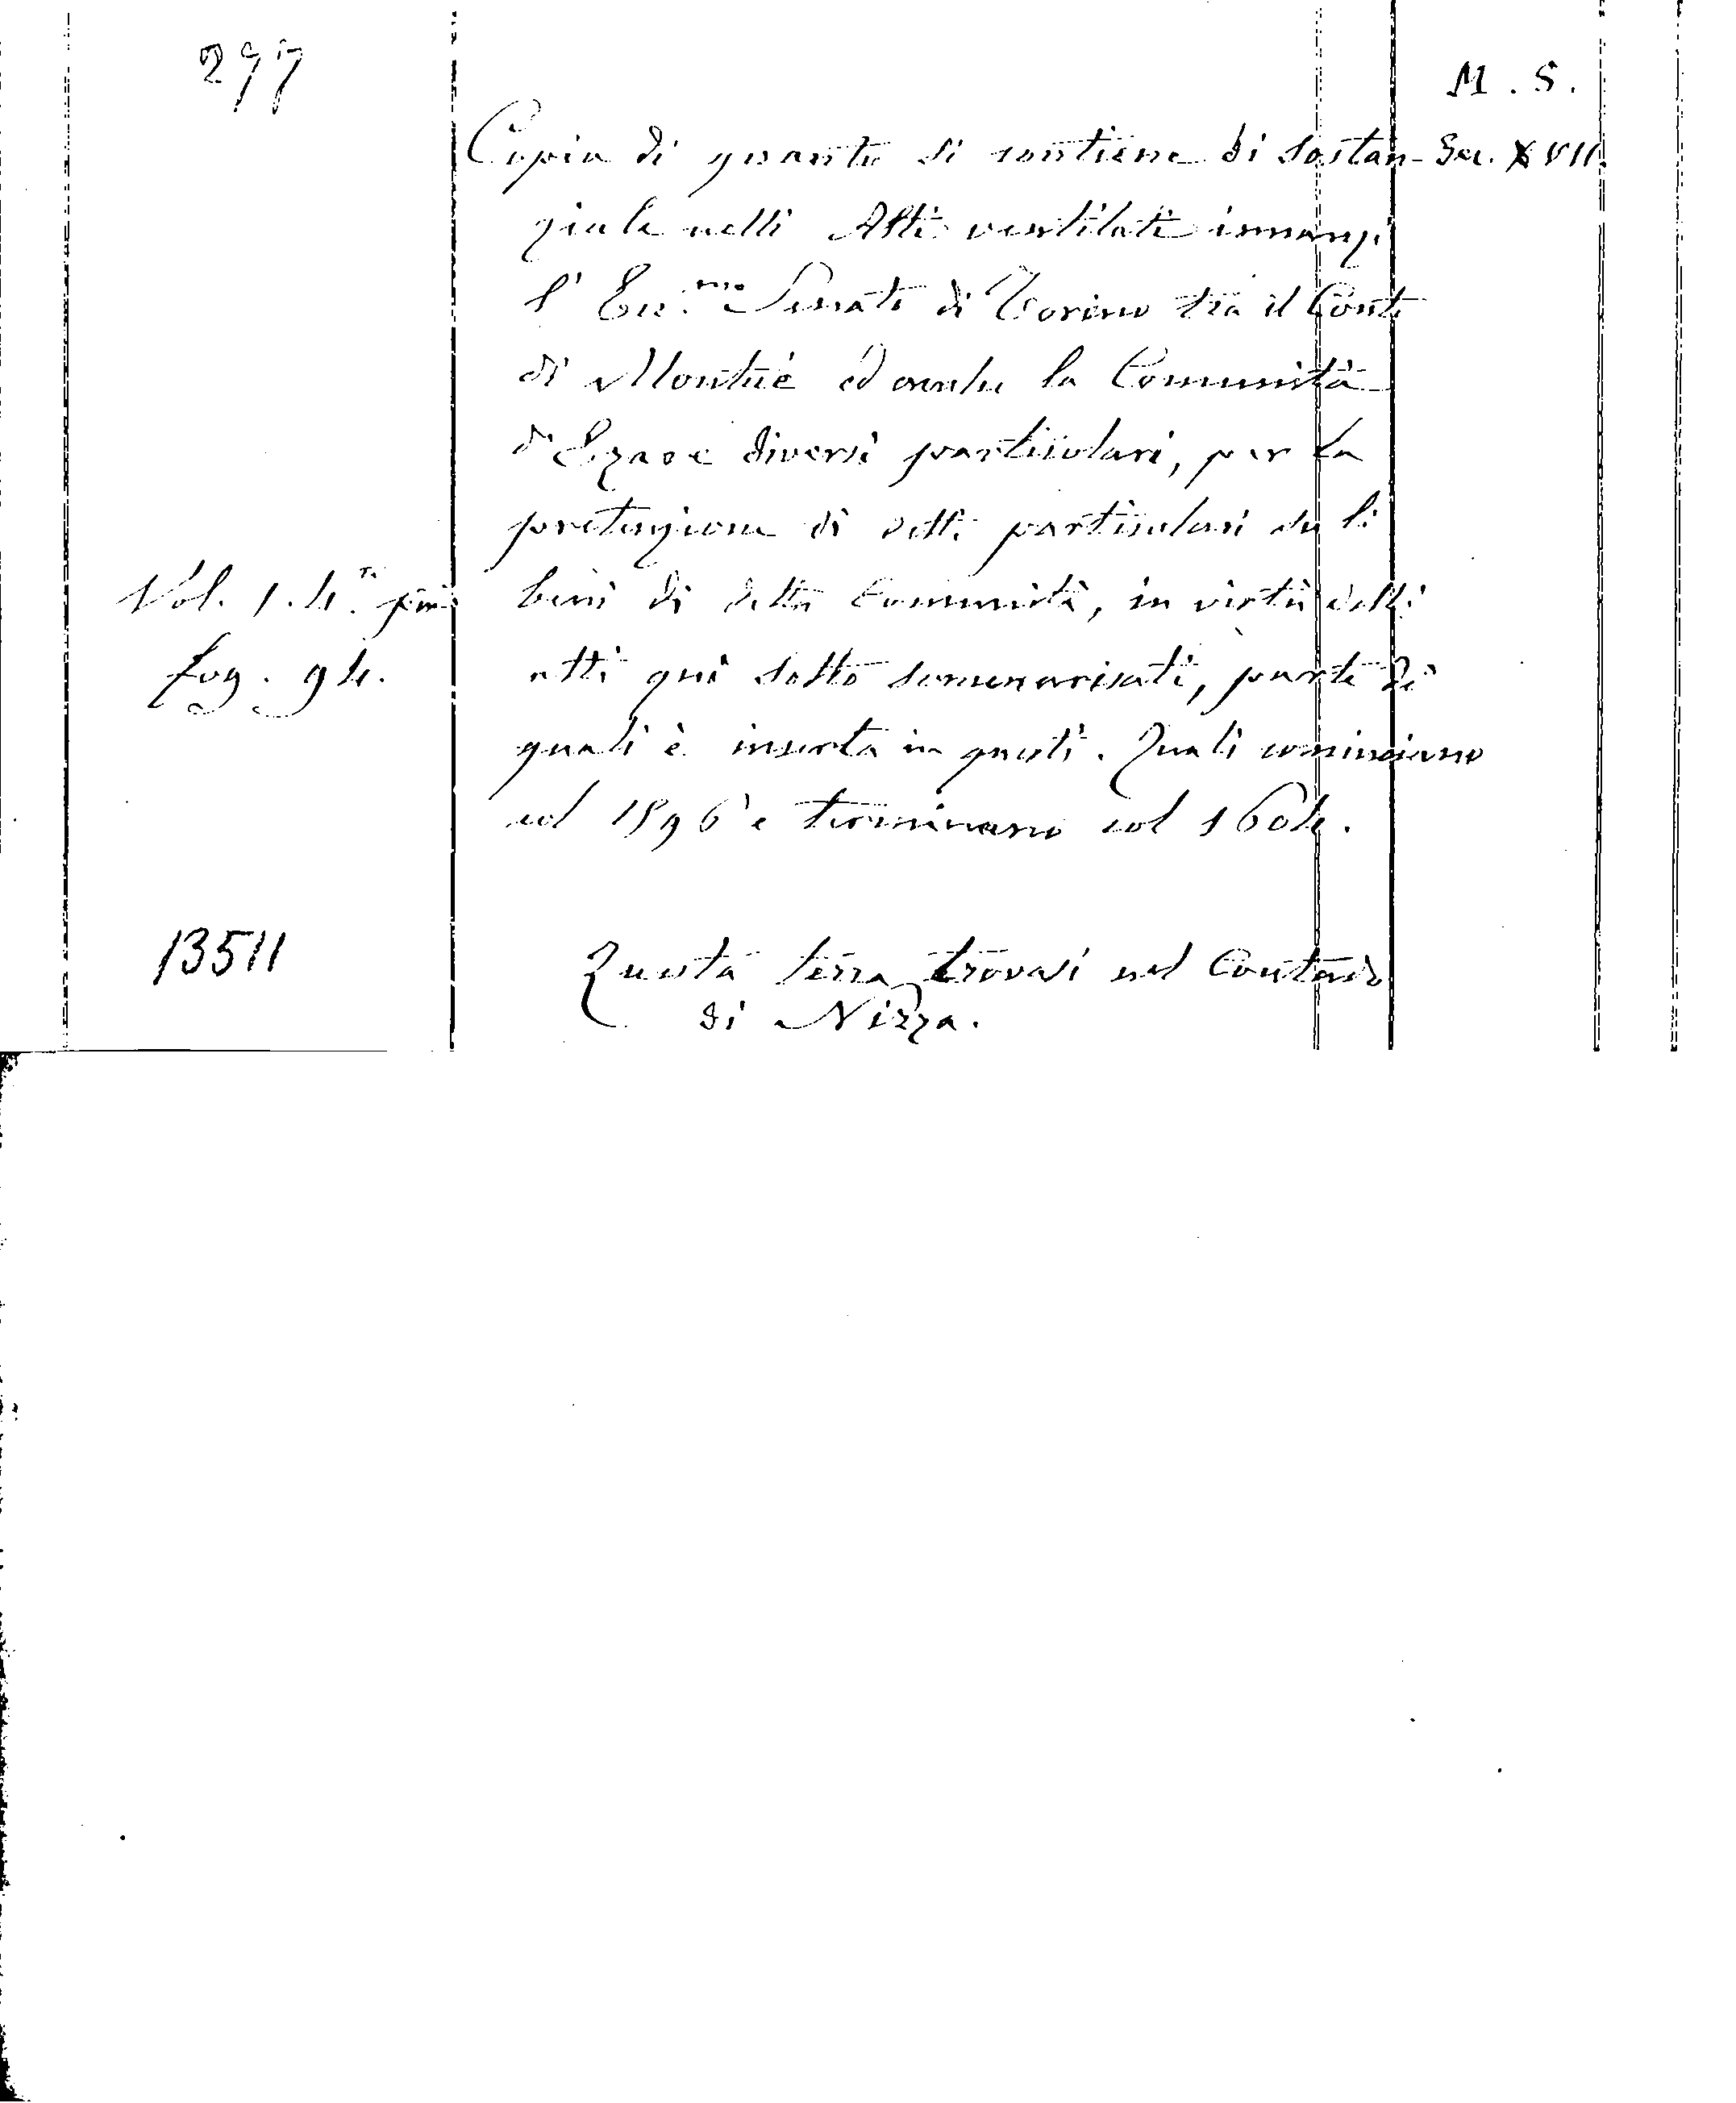 297
M. S.
Copia di quanto si contiene di sostan- Sec. XVII.
ziale nelli Atti ventilati innanzi
l' Ecc.mo Senato di Torino tra il Conte
di Montuè ed anche la Comunità
d' Eza e diversi particolari, per la
pretenzione di detti particolari su li
Vol. 1. 4.°
beni di detta Communità, in virtù delli
fog. 94.
atti quì sotto sommarisati, parte de
quali è inserta in questi. Quali cominciano
col 1596 e terminano col 1604.
13511
Questa terra trovasi nel Contado
di Nizza.